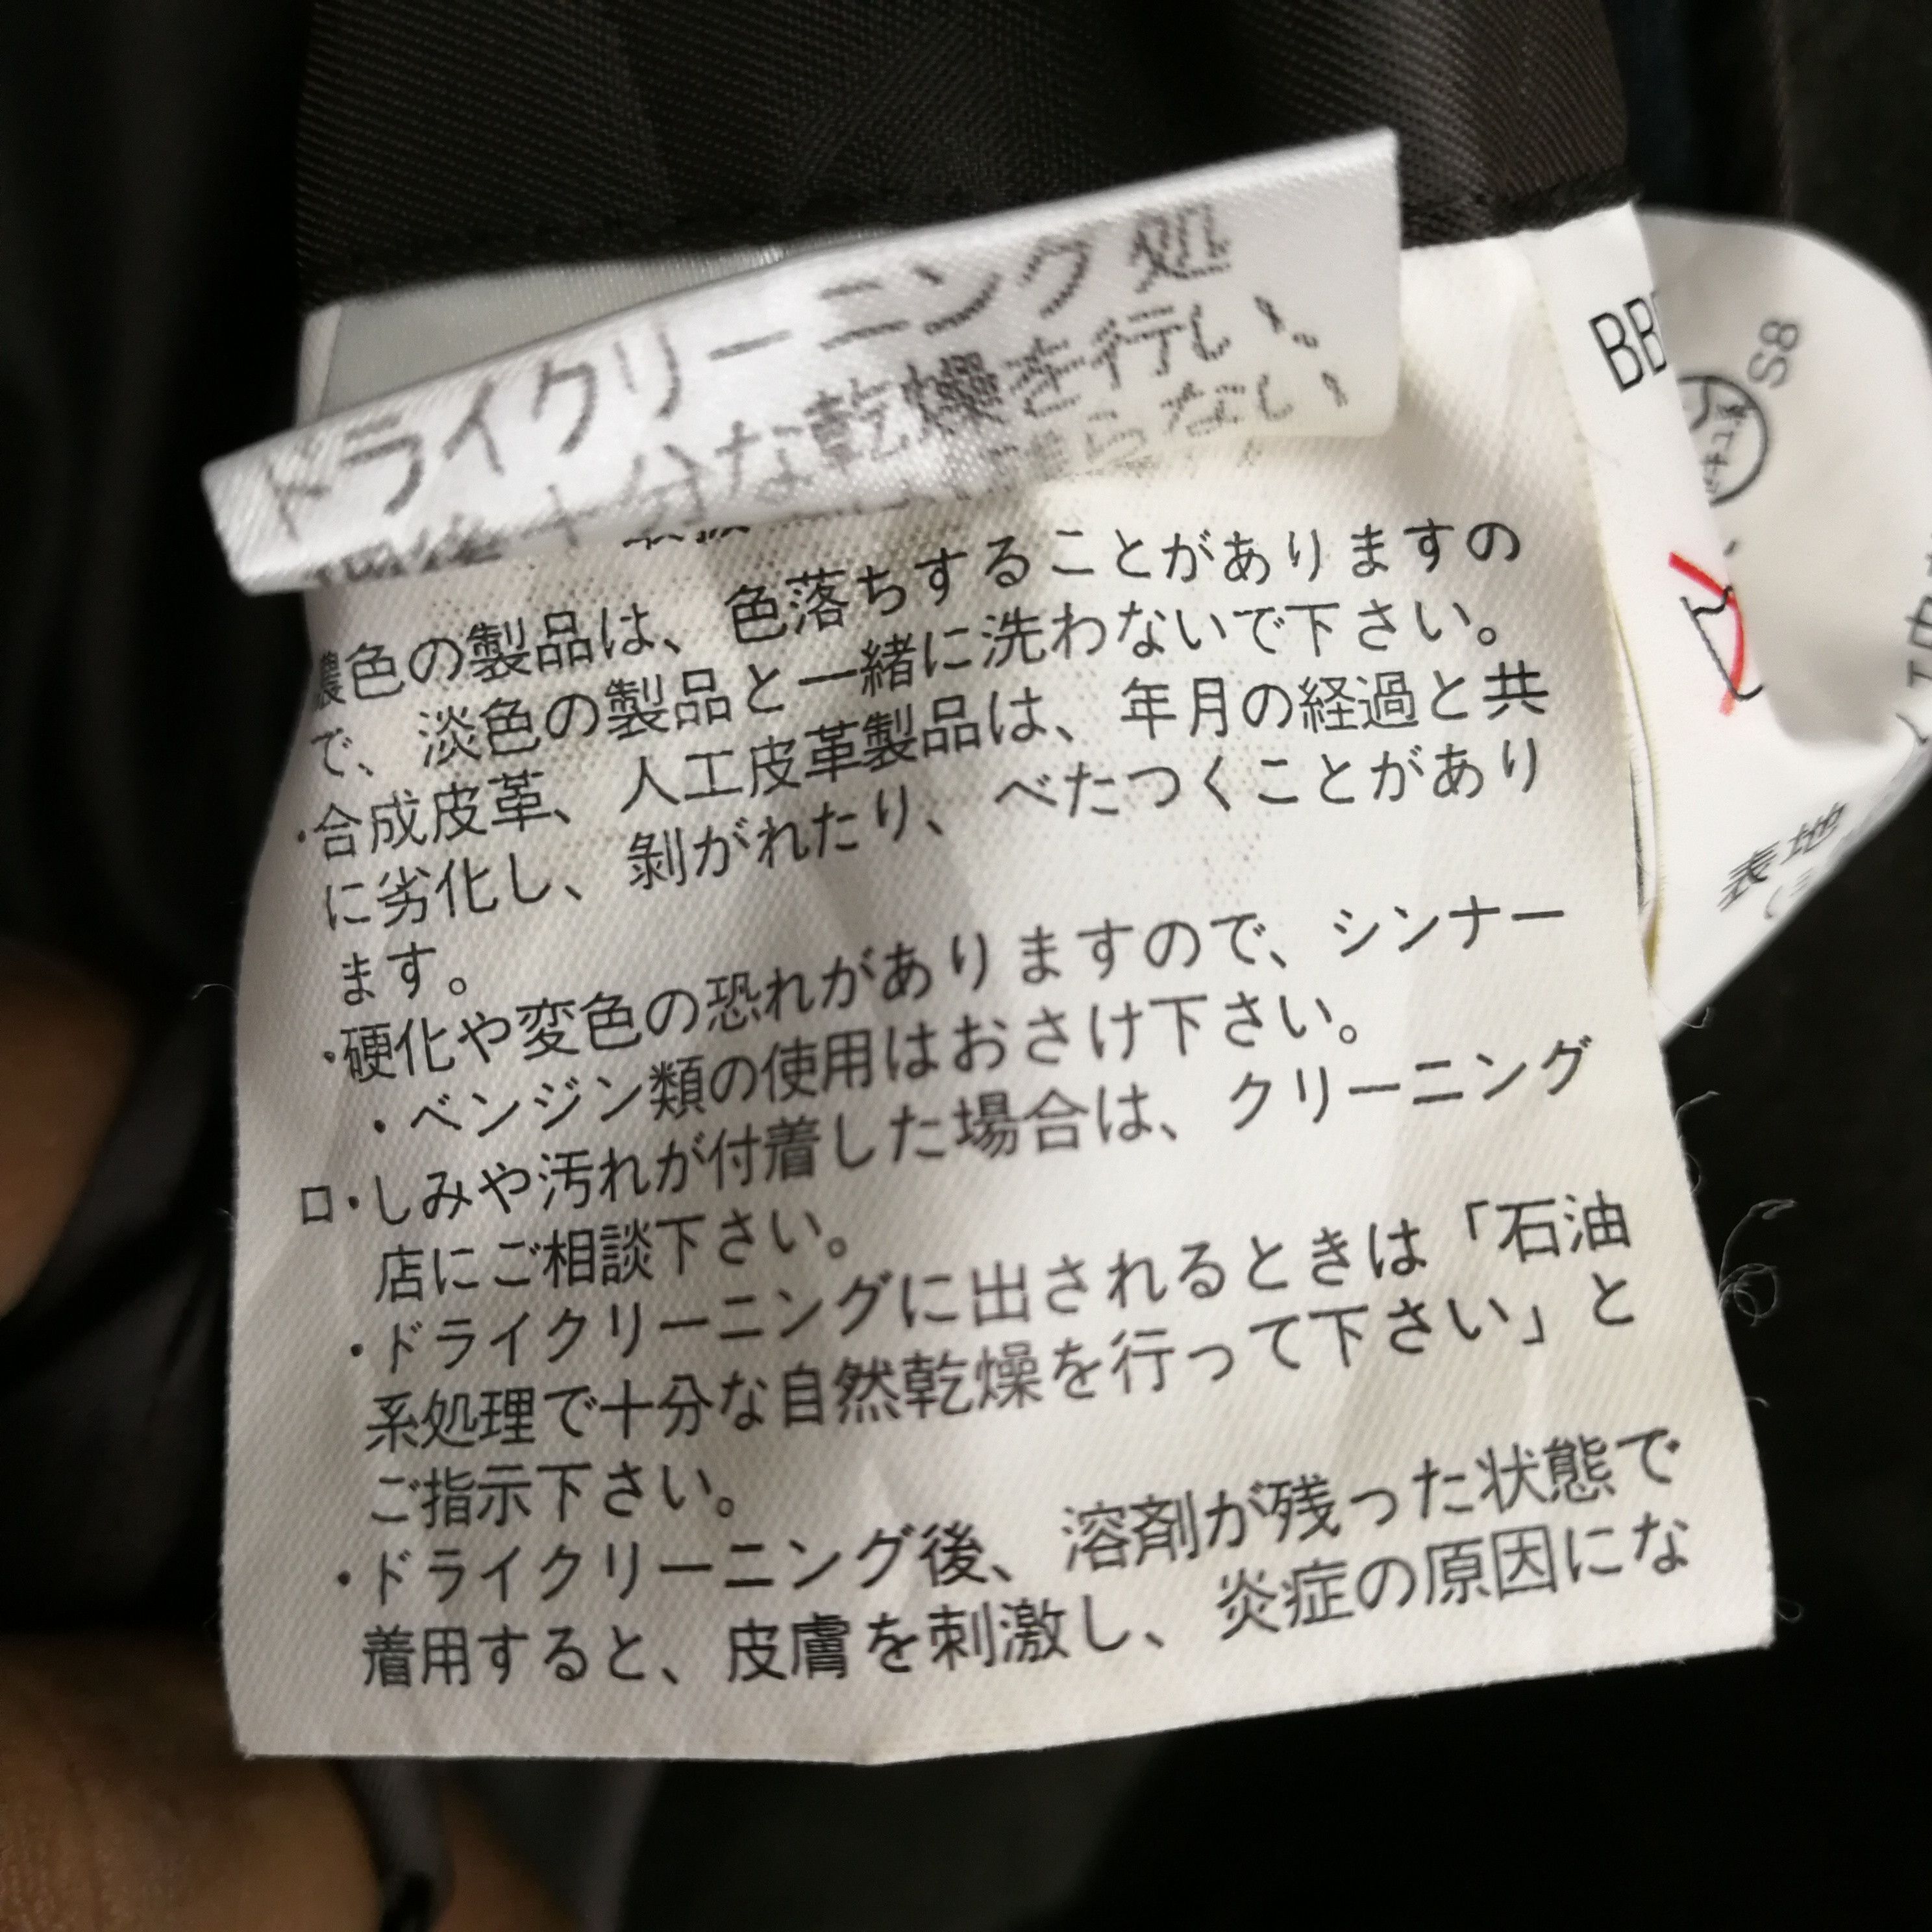 ドライクリーニング処
後十分な乾燥を行い、
濃色の製品は、色落ちすることがありますの
で、淡色の製品と一緒に洗わないで下さい。
・合成皮革、人工皮革製品は、年月の経過と共
に劣化し、剝がれたり、べたつくことがあり
ます。
・硬化や変色の恐れがありますので、シンナー
・ベンジン類の使用はおさけ下さい。
ロ・しみや汚れが付着した場合は、クリーニング
店にご相談下さい。
・ドライクリーニングに出されるときは「石油
系処理で十分な自然乾燥を行って下さい」と
ご指示下さい。
・ドライクリーニング後、溶剤が残った状態で
着用すると、皮膚を刺激し、炎症の原因にな
S8
表地